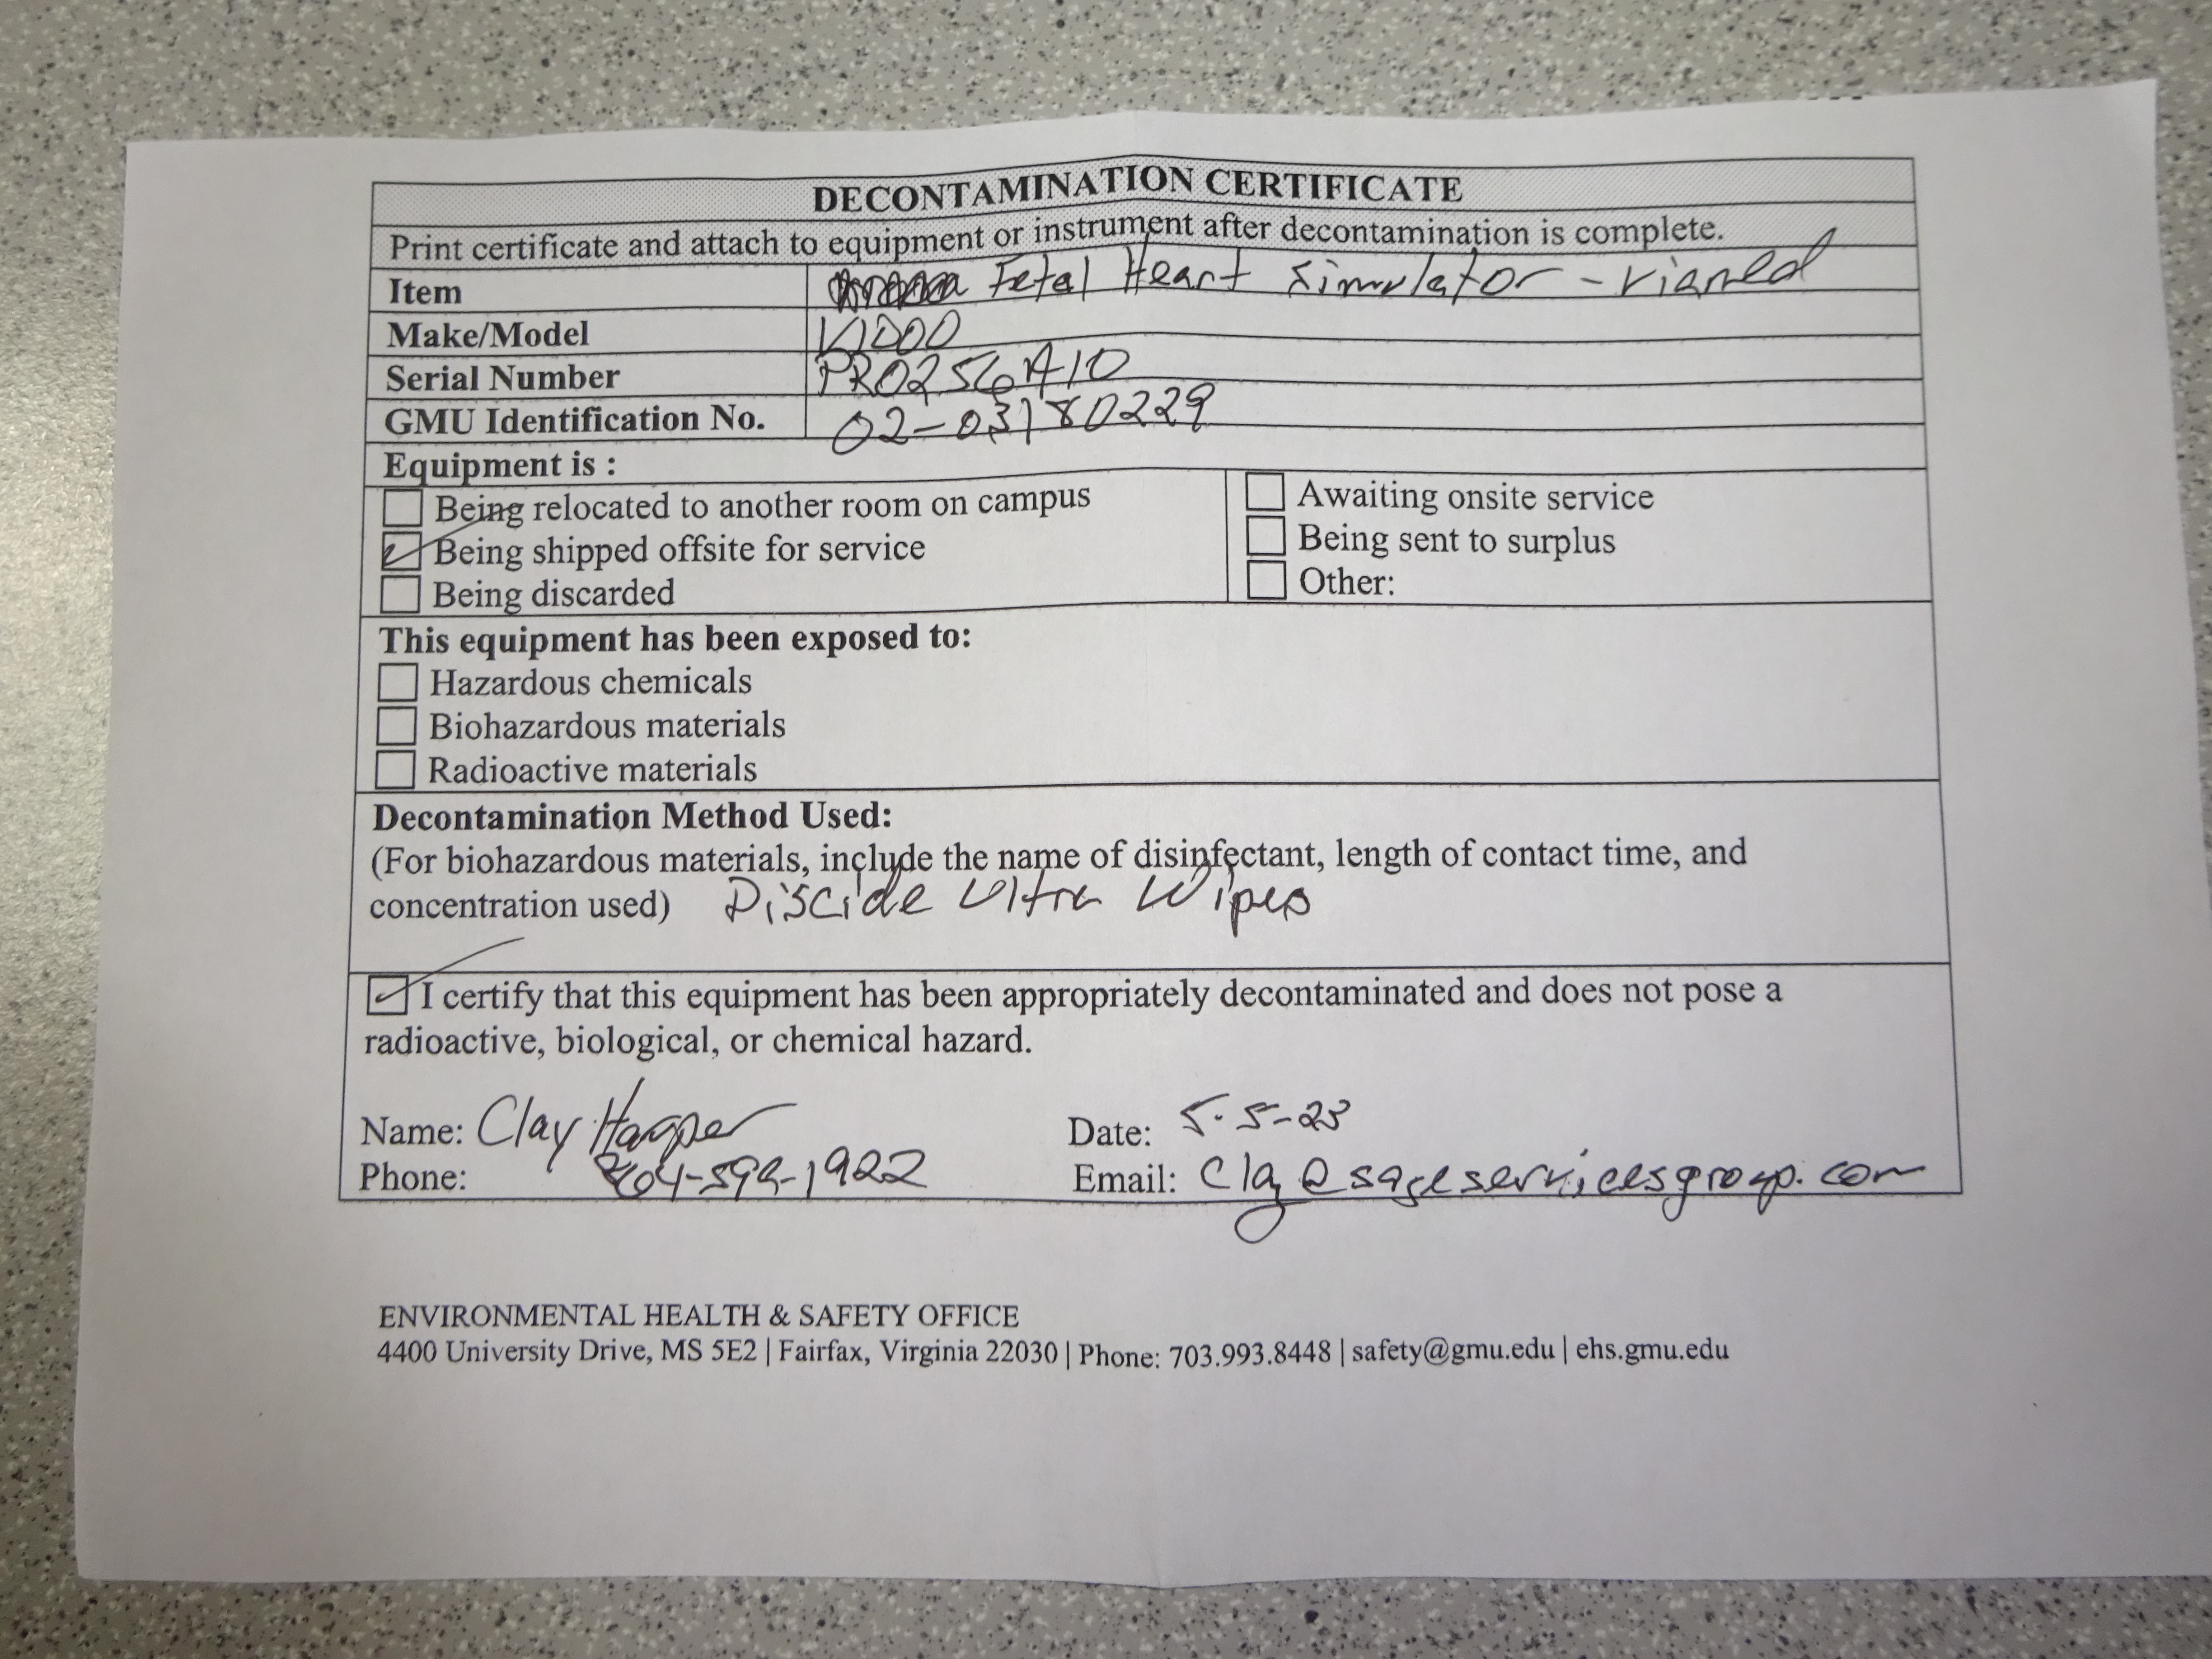 DECONTAMINATION CERTIFICATE
Print certificate and attach to equipment or instrument after decontamination is complete.
Item Fetal Heart Simulator -
Make/Model
Serial Number PRO256A10
GMU Identification No. 02-03180229
Equipment is :
Being relocated to another room on campus
Being shipped offsite for service
Being discarded
Awaiting onsite service
Being sent to surplus
Other:
This equipment has been exposed to:
Hazardous chemicals
Biohazardous materials
Radioactive materials
Decontamination Method Used:
(For biohazardous materials, include the name of disinfectant, length of contact time, and
concentration used) Discide Ultra Wipes
I certify that this equipment has been appropriately decontaminated and does not pose a
radioactive, biological, or chemical hazard.
Name: Clay Harper
Date: 5-5-23
Phone:
Email: Clay@sageservicesgroup.com
ENVIRONMENTAL HEALTH & SAFETY OFFICE
4400 University Drive, MS 5E2 | Fairfax, Virginia 22030 | Phone: 703.993.8448 | safety@gmu.edu | ehs.gmu.edu